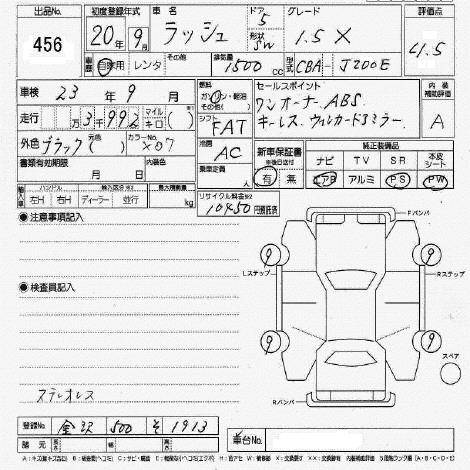 出品No. 初度登録年式 車名 ドア グレード 評価点
456 20年 9月 ラッシュ 5 形状 SW 1.5 X 4.5
車歴 自家用 レンタ その他 排気量 1500 cc 型式 CBA - J200E
車検 23 年 9 月 燃料 ガソリン・軽油 その他( ) セールスポイント 内装補助評価
走行 3千992 マイル キロ ( ) シフト FAT ワンオーナー ABS. A
キーレス. ウィルカードミラー.
外色 ブラック 元色( ) カラーNo. X07 冷房 AC 新車保証書 純正装備品
書類有効期限 月 日 内装色 乗車定員 人 有 無 ナビ TV SR 本皮シート
エアB アルミ PS PW
輸入車 ハンドル 左H 右H 輸入区分 ディーラー 並行 最大積載量 kg リサイクル料金 10450 円預託済
●注意事項記入
Fバンパ
9 9
Lステップ Rステップ
●検査員記入
9 9
スペア
ステレオレス
Rバンパ
登録No. 500 そ 1913
諸元 長さ 幅 高さ 車台No.